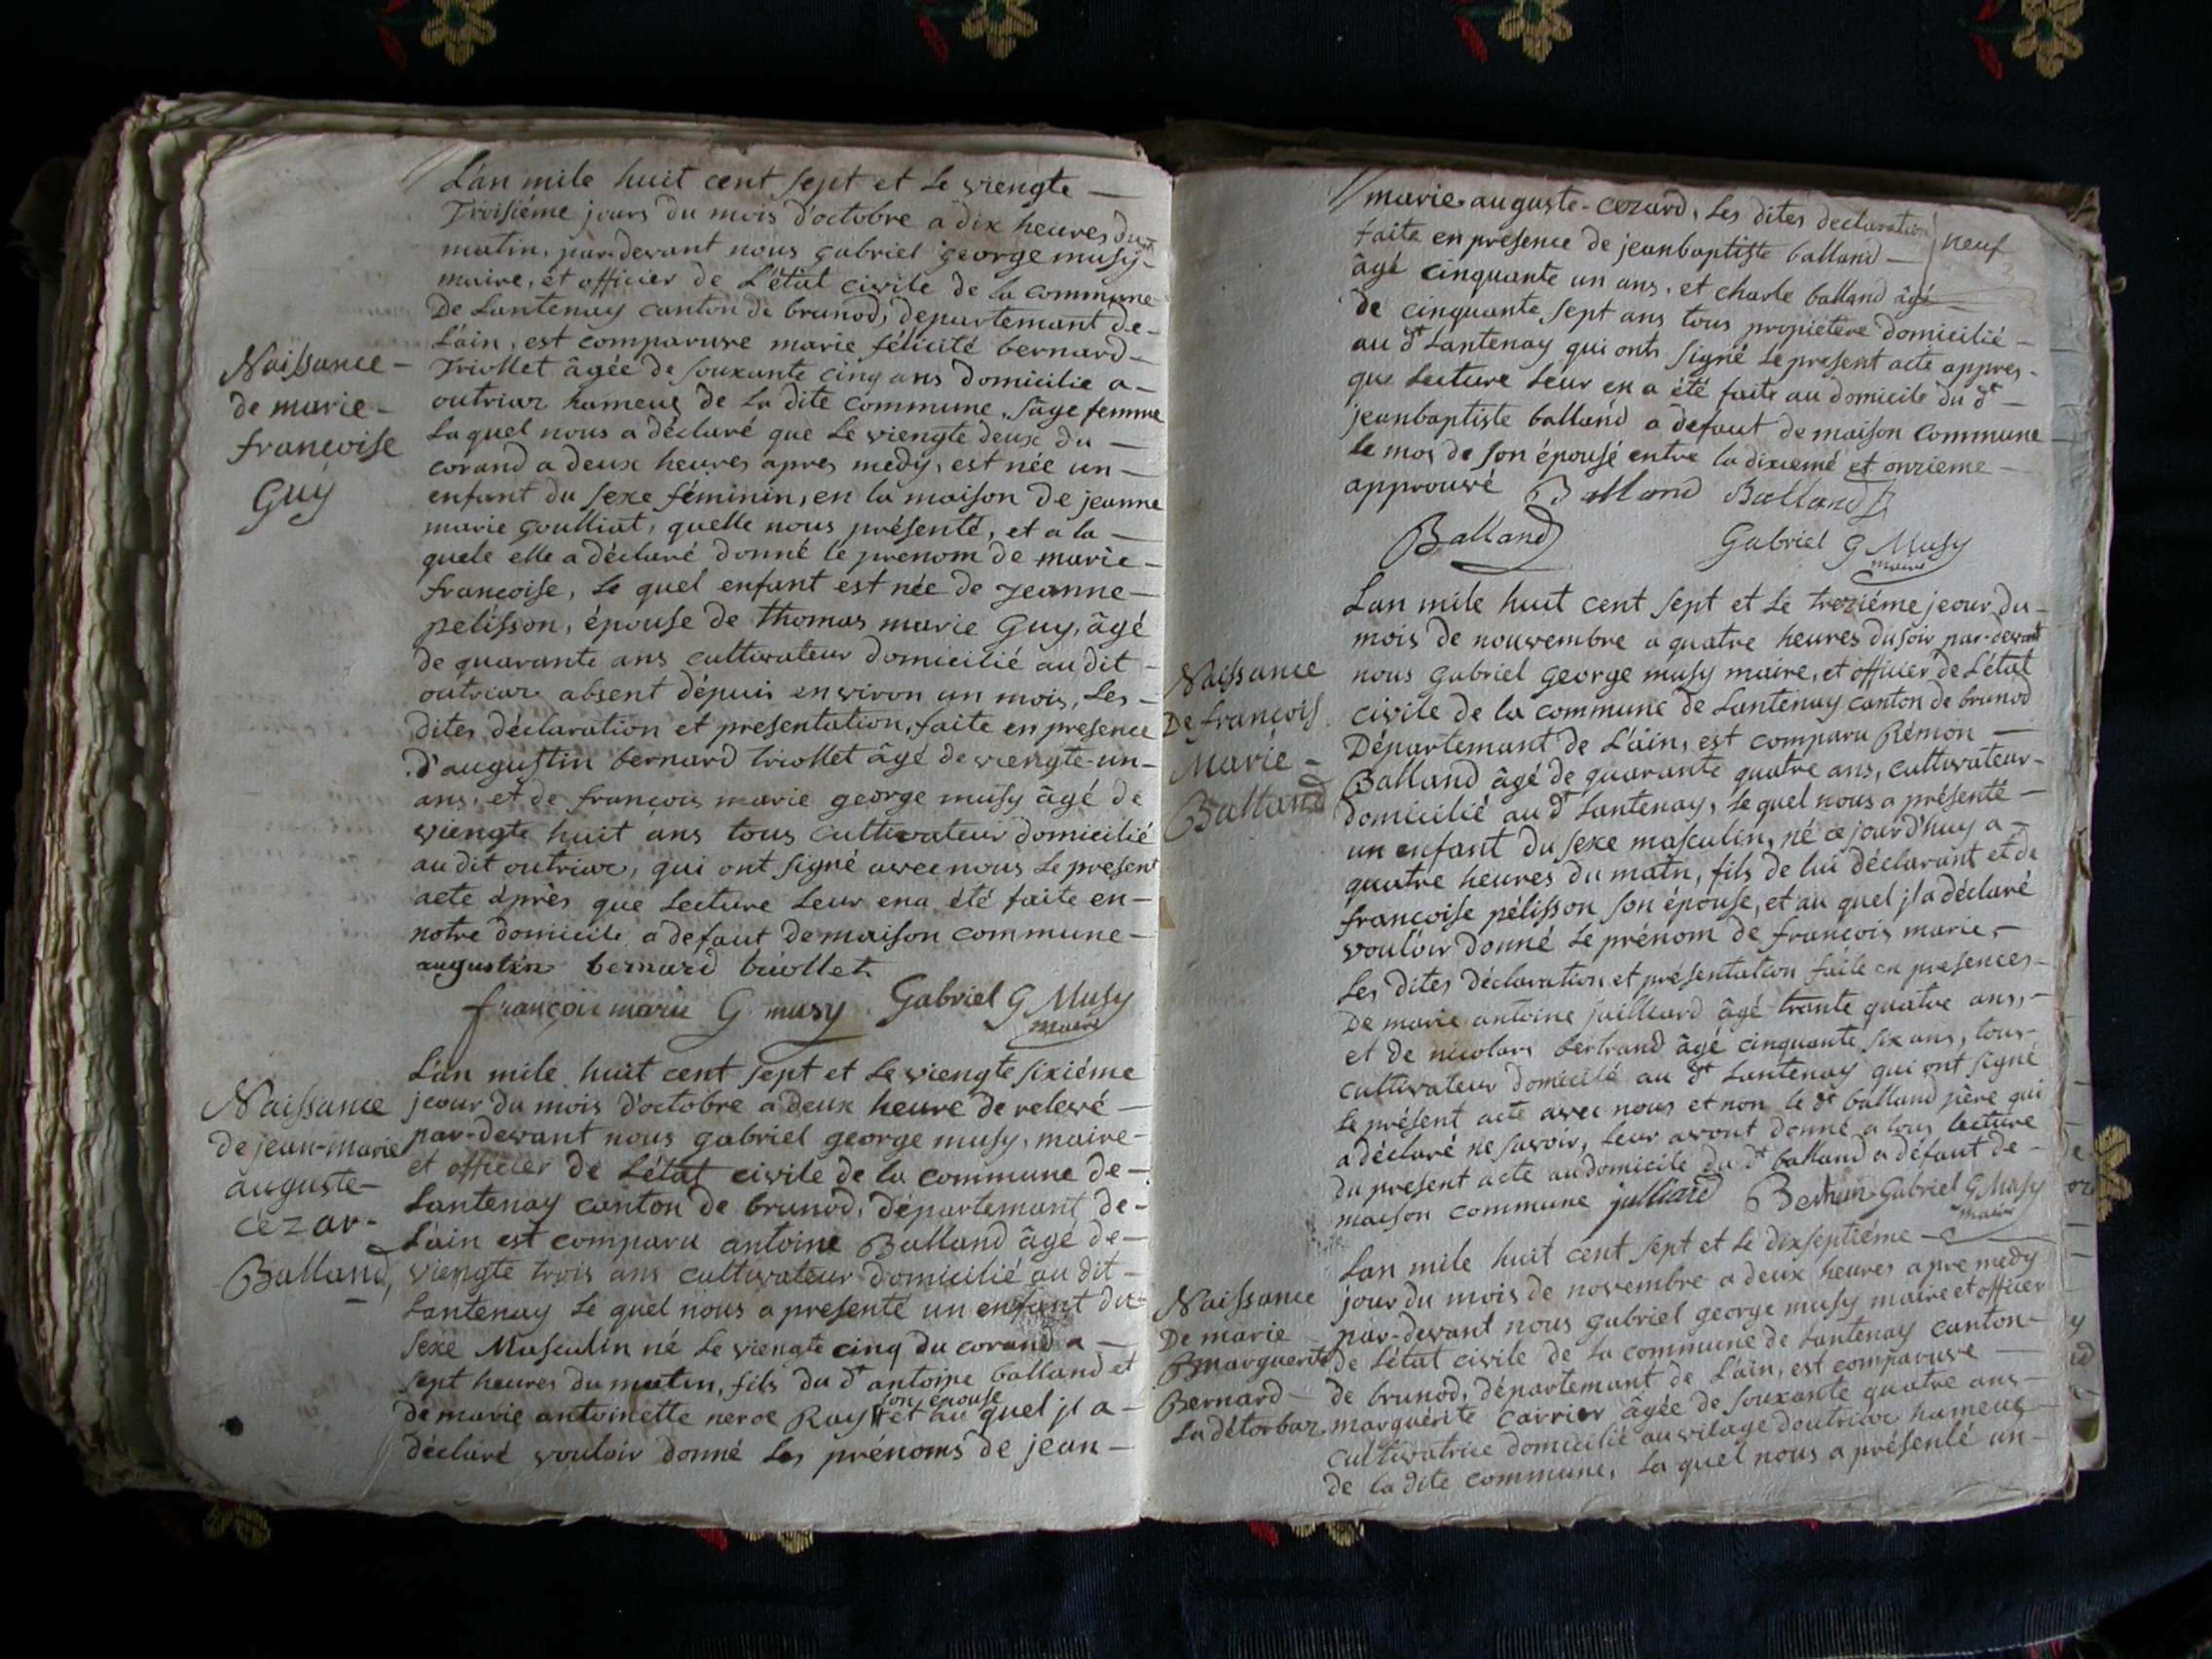 L'an mile huit cent sept et le viengte
Troisiéme jours du mois d'octobre a dix heures du
matin, par-devant nous gabriel george musy
maire, et officier de L'état civile de la commune
De Lantenay canton de brunod, departemant de
L'ain, est comparuve marie félicité bernard
Triollet âgée de souxante cinq ans domicilie a
outriaz hameuç de la dite commune, sâge femme
laquel nous a déclaré que le viengte deux du
corand a deux heures apres medy, est née un
enfant du sexe féminin, en la maison de jeanne
marie goulliat, quelle nous présenté, et a la
quele elle a déclaré donné le prenom de marie
francoise, le quel enfant est née de jeanne
pelisson, épouse de thomas marie Guy, âgé
de quarante ans cultivateur domicilié au dit
outriaz absent dépuis environ un mois, Les
dites déclaration et presentation, faite en presence
d'augustin bernard triollet âgé de viengte-un
ans, et de francois marie george musy âgé de
viengte huit ans tous cultivateur domicilié
au dit outriaz, qui ont signé avec nous le present
acte après que lecture leur en a été faite en
notre domicile a defaut de maison commune
augustin bernard triollet
françois marie G musy Gabriel G Musy
maire
Naissance
de marie
francoise
Guy
L'an mile huit cent sept et le viengte sixiéme
jeour du mois d'octobre a deux heure de relevé
par-devant nous gabriel george musy, maire
et officier de L'état civile de la commune de
Lantenay canton de brunod, département de
L'ain est comparu antoine Balland âgé de
viengte trois ans cultivateur domicilié au dit
Lantenay le quel nous a presenté un enfant du
sexe Masculin né le viengte cinq du corand a
sept heures du matin, fils du dt antoine balland et
son épouse
de marie antoinette neroe Ray et au quel jl a
déclaré vouloir donné les prénoms de jean
Naissance
de jean-marie
auguste
cézar
Balland
marie auguste-cezard, Les dites declaration
faite en presence de jeanbaptiste balland
neuf
âgé cinquante un ans, et charle balland âgé
de cinquante sept ans tous propiétere domicilié
au dt Lantenay qui onts signé le present acte appres
que lecture leur en a été faite au domicile du dt
jeanbaptiste balland a defaut de maison commune
le mos de son épousé entre la dixiemé et onzieme
approuvé Balland Balland
Balland Gabriel G Musy
maire
Lan mile huit cent sept et le treziéme jeour du
mois de nouvembre a quatre heures du soir par-devant
nous gabriel george musy maire, et officier de L'état
civile de la commune de Lantenay canton de brunod
Départemant de L'ain, est comparu Rémon
Balland âgé de quarante quatre ans, cultivateur
domicilié au dt Lantenay, le quel nous a présenté
un enfant du sexe masculin, né ce jourd'huy a
quatre heures du matn, fils de lui déclarant et de
francoise pélisson son épouse, et au quel jl a déclaré
vouloir donné le prénom de francois marie,
Les dites déclaration et présentation faite en presences
De marie antoine juilliard âgé trante quatre ans,
et de nicolars bertrand âgé cinquante six ans, tous
cultivateur domicilé au dt Lantenay qui ont signé
le présent acte avec nous et non le dt balland père qui
a déclaré ne savoir, leur avont donné a tous lecture
du present acte au domicile du dt balland a défaut de
maison commune julliard Gabriel G Musy
maire
Naissance
De francois
Marie
Balland
Lan mile huit cent sept et le dixseptiéme
jour du mois de novembre a deux heures apre medy
par-devant nous gabriel george musy maire et officier
de L'état civile de la commune de Lantenay canton
de brunod, département de L'ain, est comparuve
marguérite carrier âgée de souxante quatre ans
cultivatrice domicilié au vilage doutriaz hameuç
de la dite commune, la quel nous a présenté un
Naissance
De marie
marguerite
Bernard
La détorbaz